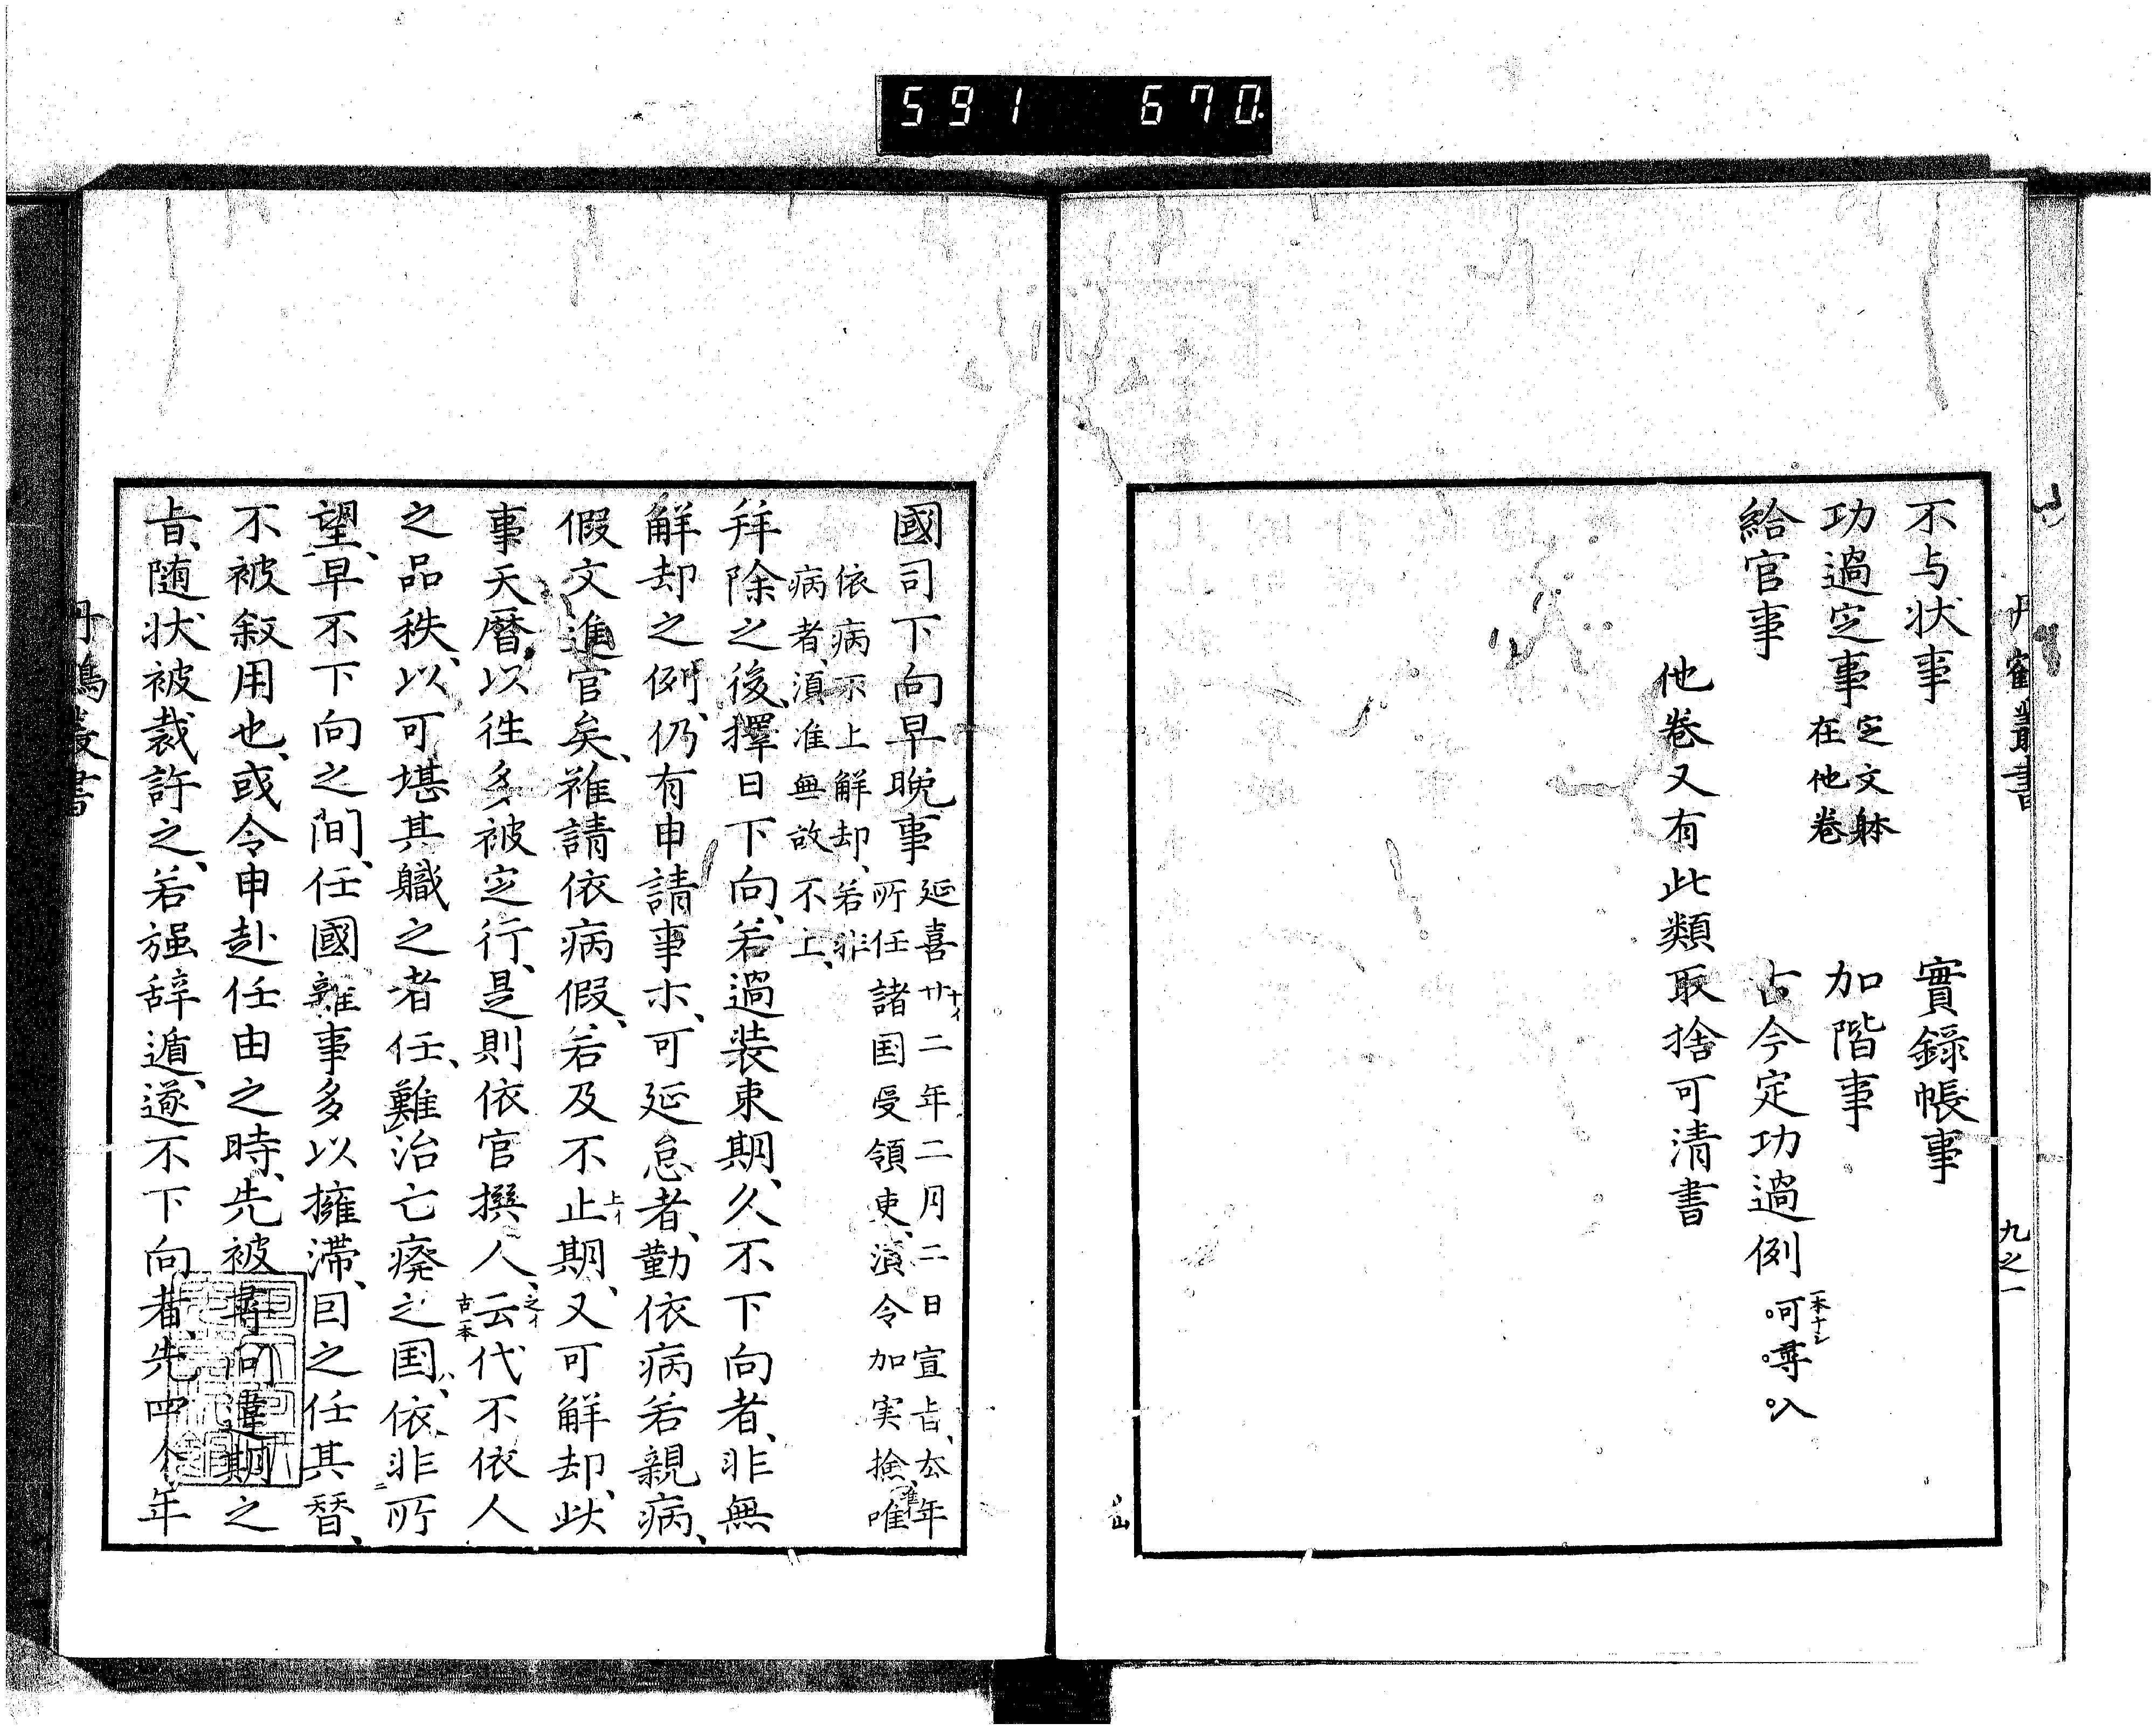 591 670
丹鶴叢書
九之一
不与状事 實録帳事
功過定事 定文躰 加階事
在他卷
給官事 古今定功過例 呵尋入
一本ナシ
他卷又有此類取捨可清書
國司下向早晩事 延喜廿二年二月二日宣㫖、去年
十イ
所任諸国受領吏、湏令加実撿、唯
准イ
依病不上解却、若非
病者、湏准無故不上、
拜除之後、擇日下向、若過装束期、久不下向者、非無
解却之例、仍有申請事、可延怠者、勤依病若親病、
假文進官矣、雖請依病假、若及不止期、又可解却、此
上イ
事天暦以徃多被定行、是則依官撰人、云代不依人
之イ
古一本
之品秩、以可堪其職之者任、難治亡癈之国、依非所
望、早不下向之間、任國雜事多以擁滯、因之任其替、
不被叙用也、或令申赴任由之時、先被尋問違期之
㫖、随状被裁許之、若强辞遁、遂不下向者、先四个年
丹鶴叢書